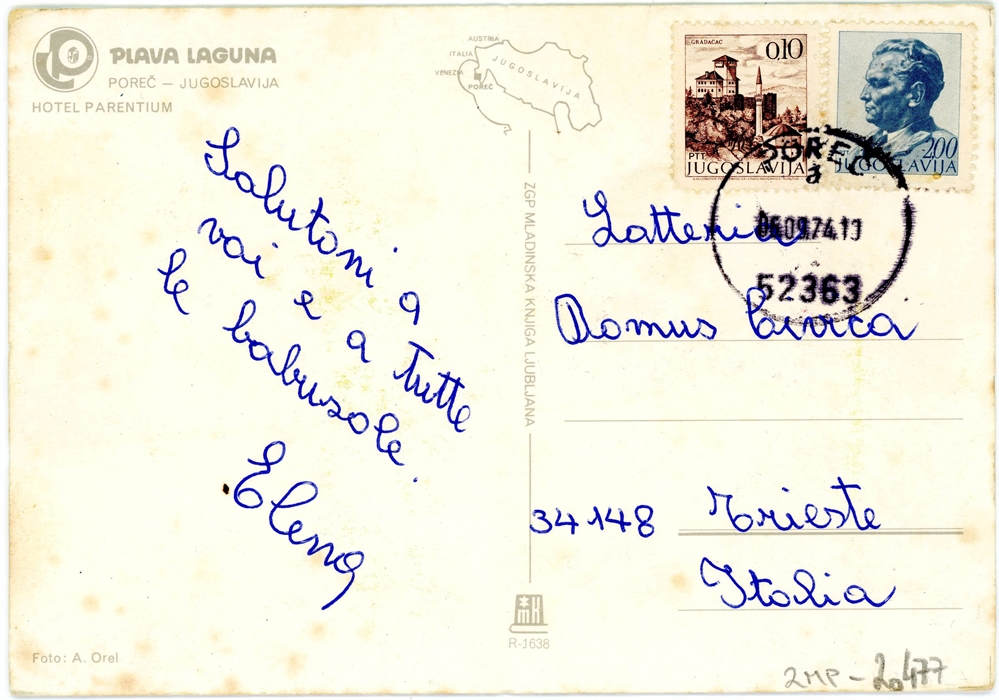 PLAVA LAGUNA
POREČ – JUGOSLAVIJA
HOTEL PARENTIUM
AUSTRIA
ITALIA
VENEZIA
JUGOSLAVIJA
POREČ
GRADAČAC
0,10
PTT
JUGOSLAVIJA
2,00
JUGOSLAVIJA
POREČ
a
06.09.74.10
52363
Salutoni a
voi e a tutte
le babusole.
Elena
Latteria
Domus Civica
34148 Trieste
Italia
ZGP MLADINSKA KNJIGA LJUBLJANA
MK
R-1638
Foto: A. Orel
2MP-20477